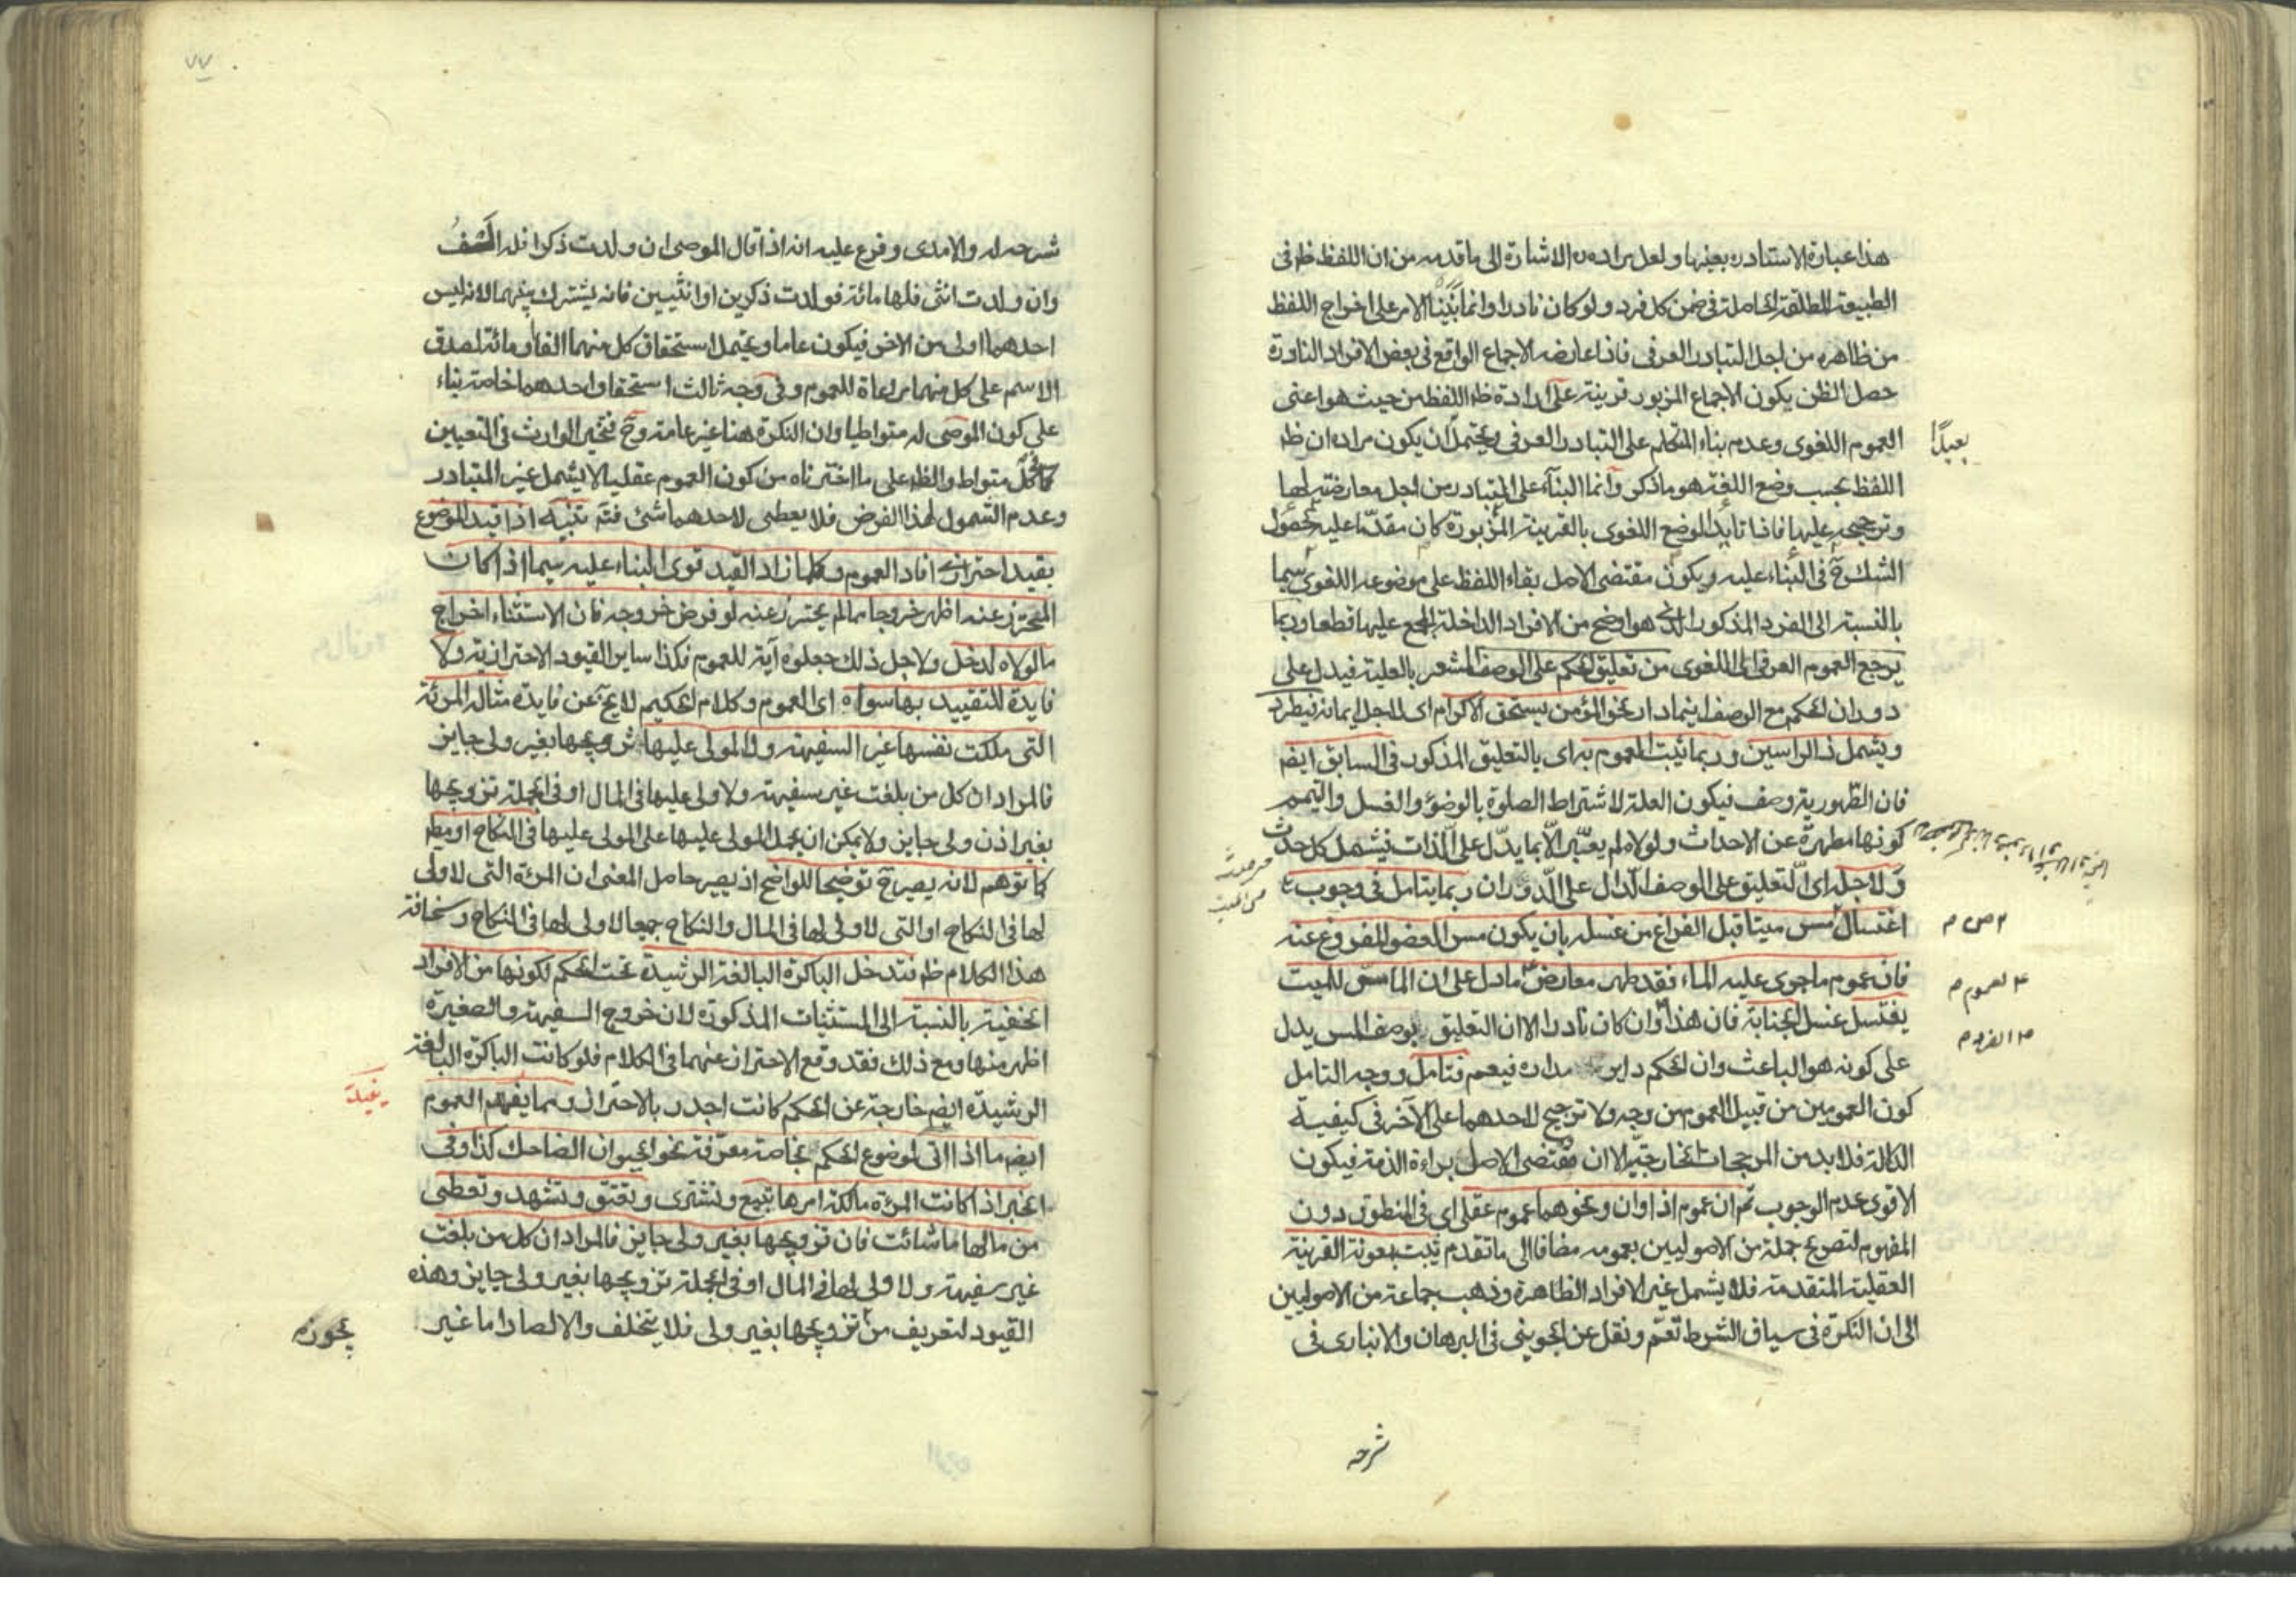 هذا عبارة الاستناد ره بعينها ولعل مراده ره الاشارة الى ما قدمه من ان اللفظ ظ في
الطبيعة المطلقة الحاصلة في ضمن كل فرد ولو كان نادرا وانما بنينا الامر على اخراج اللفظ
من ظاهره من اجل التبادر العرفي فاذا عارضه الاجماع الواقع في بعض الافراد النادرة
حصل الظن بكون الاجماع المزبور قرينة على ارادة ظ اللفظ من حيث هو اعنى
العموم اللغوى وعدم بناء المتكلم على التبادر العرفي ويحتمل ان يكون مراده ان ظ
بعيدًا
اللفظ بحسب وضع اللغة هو ما ذكر وانما البناء على المتبادر من اجل معارضته لها
وترجيحه عليها فاذا تايد الموضع اللغوى بالقرينة المزبورة كان مقدّما عليه لحصول
الشك ح في البناء عليه ويكون مقتضى الاصل بقاء اللفظ على موضوعه اللغوى سيما
بالنسبة الى الفرد المذكور الذى هو اوضح من الافراد الداخلة المجمع عليها قطعا وربما
يرجع العموم العرفي الى اللغوى من تعليق الحكم على الوصف المشعر بالعلية فيدل على
دوران الحكم مع الوصف اينما دار نحو المؤمن يستحق الاكرام اى لاجل ايمانه فيطرد
ويشمل ذا الراسين وربما ثبت العموم به اى بالتعليق المذكور في السابق ايضا
فان الطهورية وصف فيكون العلة لاشتراط الصلوة بالوضوء والغسل والتيمم
كونها مطهرة عن الاحداث ولولاه لم يعبّر الّا بما يدّل على الّذات فيشمل كل حدث
ولاجله اى التعليق على الوصف الدال على الّدوران ربما يتامل في وجوب
اغتسال مس ميتا قبل الفراغ من غسله بان يكون مس العضو المفروغ عنه
م ص م
فان عموم ما جرى عليه الماء فقد طهر معارض ما دل على ان الماسّ للميت
لعموم م
يغتسل غسل الجنابة فان هذا وان كان نادرا الا ان التعليق بوصف المس يدل
م الفرد م
على كونه هو الباعث وان الحكم داير مداره فيعم فتامل ووجه التامل
كون العمومين من قبيل العموم من وجه ولا ترجيح لاحدهما على الآخر في كيفية
الدلالة فلا بد من المرجحات الخارجيّة الا ان مقتضى الاصل براءة الذمة فيكون
الاقوى عدم الوجوب ثم ان عموم اذا وان ونحوهما عموم عقلى اى في المنطوق دون
المفهوم لتصريح جملة من الاصوليين بعمومه مضافا الى ما تقدم ثبت بمعونة القرينة
العقلية المتقدمة فلا يشمل غير الافراد الظاهرة وذهب جماعة من الاصوليين
الى ان النكرة في سياق الشرط تعمّ ونقل عن الجوينى في البرهان والانبارى في
شرحه
٧٧
شرحه له والامدى وفرع عليه انه اذا قال الموصى ان ولدت ذكرا فله الف
وان ولدت انثى فلها مائة فولدت ذكرين او انثيين فانه يشترك بينهما لانه ليس
احدهما اولى من الاخر فيكون عاما ويحتمل استحقاق كل منهما الفا او مائة لصدق
الاسم على كل منهما مراعاة للعموم وفي وجه ثالث استحقاق احدهما خاصة بناء
على كون الموصى له متواطيا وان النكرة هنا غير عامة وح فتخير الوارث في التعيين
كما في كل متواط والظ على ما اخترناه من كون العموم عقليا لا يشمل غير المتبادر
وعدم الشمول لهذا الفرض فلا يعطى لاحدهما شئ فتم تنبيه اذا قيد الموضوع
بقيد احترازى افاد العموم وكلما زاد القيد قوى البناء عليه سيما اذا كان
المحترز عنه اظهر خروجا مما لم يحترز عنه لو فرض خروجه فان الاستثناء اخراج
ما لولاه لدخل ولاجل ذلك جعلوه آية للعموم فكذا ساير القيود الاحترازية ولا
فايدة للتقييد بها سواه اى العموم وكلام الحكيم لا يخ عن فايدة مثاله المرئة
التى ملكت نفسها غير السفيهة ولا المولى عليها تزويجها بغير ولى جايز
فالمراد ان كل من بلغت غير سفيهة ولا ولى عليها في المال او في الجملة تزويجها
بغير اذن ولى جايز ولا يمكن ان يحمل المولى عليها على المولى عليها في النكاح او مط
كما توهم لانه يصير ح توضيحا للواضح اذ يصير حاصل المعنى ان المرئة التى لا ولى
لها في النكاح او التى لا ولى لها في المال والنكاح جميعا لا ولى لها في النكاح وسخافة
هذا الكلام ظ فتدخل الباكرة البالغة الرشيدة تحت الحكم لكونها من الافراد
الخفية بالنسبة الى المستثنيات المذكورة لان خروج السفيهة والصغيرة
اظهر منها ومع ذلك فقد وقع الاحتراز عنهما في الكلام فلو كانت الباكرة البالغة
الرشيدة ايضا خارجة عن الحكم كانت اجدر بالاحتراز ومما يفهم العموم
ايضا ما اذا اتى لموضوع الحكم بخاصة معرّفة نحو الحيوان الضاحك كذا وفي
الخبر اذا كانت المرئة مالكة امرها تبيع وتشترى وتعتق وتشهد وتعطى
من مالها ما شائت فان تزويجها بغير ولى جايز فالمراد ان كل من بلغت
غير سفيهة ولا ولى لها في المال او في الجملة تزويجها بغير ولى جايز وهذه
القيود لتعريف من تزويجها بغير ولى فلا يتخلف والا لصار اما غير